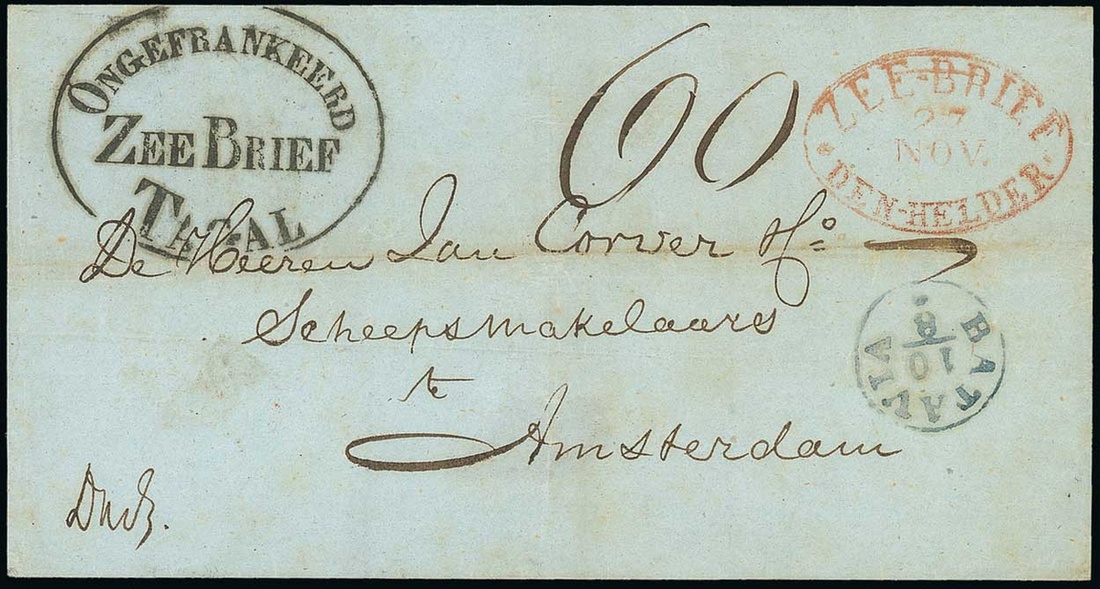 ONGEFRANKEERD
ZEE BRIEF
TAGAL
60
ZEE-BRIEF
27
NOV.
DEN-HELDER
De Heeren Jan Corver &
Scheepsmakelaars
te
Amsterdam
BATAVIA
10
8